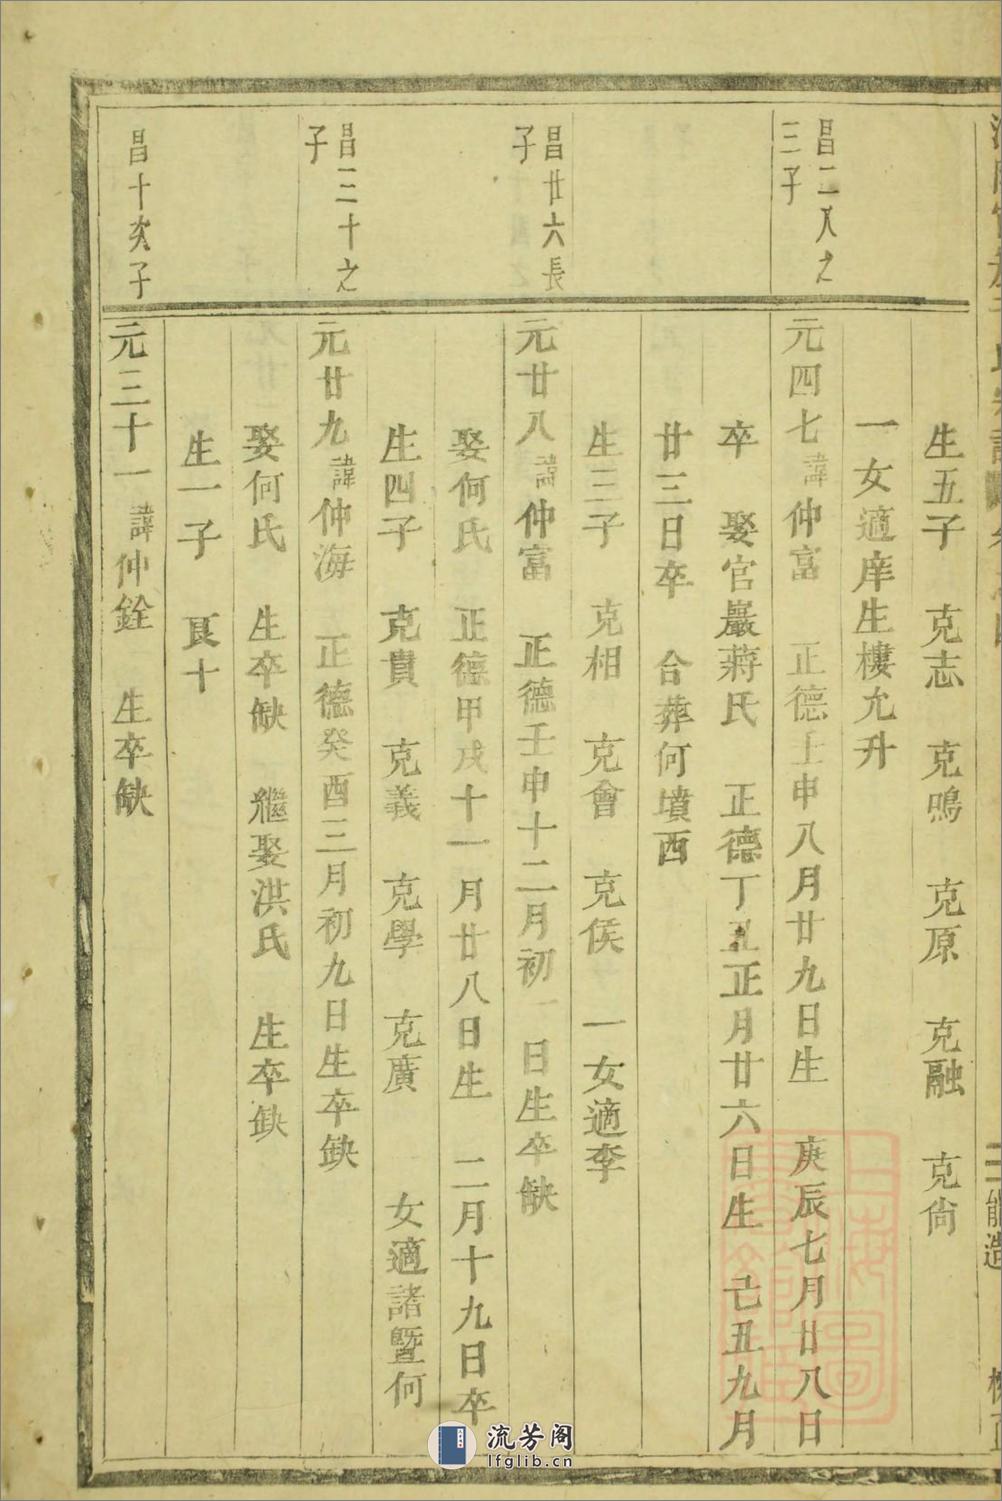 生五子　克志　克鳴　克原　克融　克尙
一女適庠生樓允升
昌二八之
三子
元四七諱仲富　正德壬申八月廿九日生　庚辰七月廿八日
卒　娶官巖蔣氏　正德丁丑正月廿六日生　己丑九月
廿三日卒　合葬何墳西
生三子　克相　克會　克侯　一女適李
昌廿六長
子
元廿八諱仲富　正德壬申十二月初一日生卒缺
娶何氏　正德甲戌十一月廿八日生　二月十九日卒
生四子　克貴　克義　克學　克廣　女適諸暨何
昌三十之
子
元廿九諱仲海　正德癸酉三月初九日生卒缺
娶何氏　生卒缺　繼娶洪氏　生卒缺
生一子　艮十
昌十次子
元三十一諱仲銓　生卒缺
流芳阁
lfglib.com